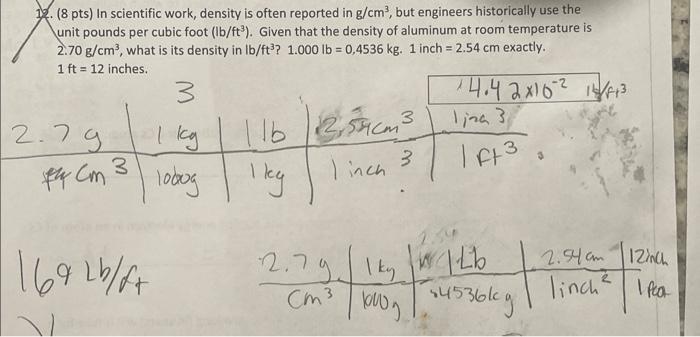 12. (8 pts) In scientific work, density is often reported in g/cm³, but engineers historically use the
unit pounds per cubic foot (lb/ft³). Given that the density of aluminum at room temperature is
2.70 g/cm³, what is its density in lb/ft³? 1.000 lb = 0,4536 kg. 1 inch = 2.54 cm exactly.
1 ft = 12 inches.
3
4.42x10⁻² lb/ft3
2.7g | 1 kg | 1 lb | 2.54cm³ | 1 inch 3
cm³ | 1000g | 1 kg | 1 inch 3 | 1 ft³
169 Lb/ft
2.7g | 1 kg | 1Lb | 2.54 cm | 12inch
cm³ | 1000g | .4536kg | 1inch² |